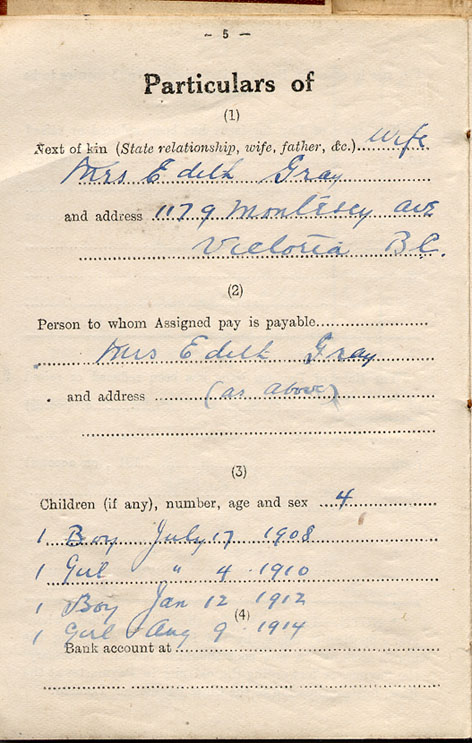 - 5 -
Particulars of
(1)
Next of kin (State relationship, wife, father, &c.) wife
Mrs Edith Gray
and address 1179 Monterey ave
Victoria B.C.
(2)
Person to whom Assigned pay is payable
Mrs Edith Gray
and address (as above)
(3)
Children (if any), number, age and sex 4
1 Boy July 17 1908
1 Girl " 4 1910
1 Boy Jan 12 1912
(4)
1 Girl Aug 9 1914
Bank account at